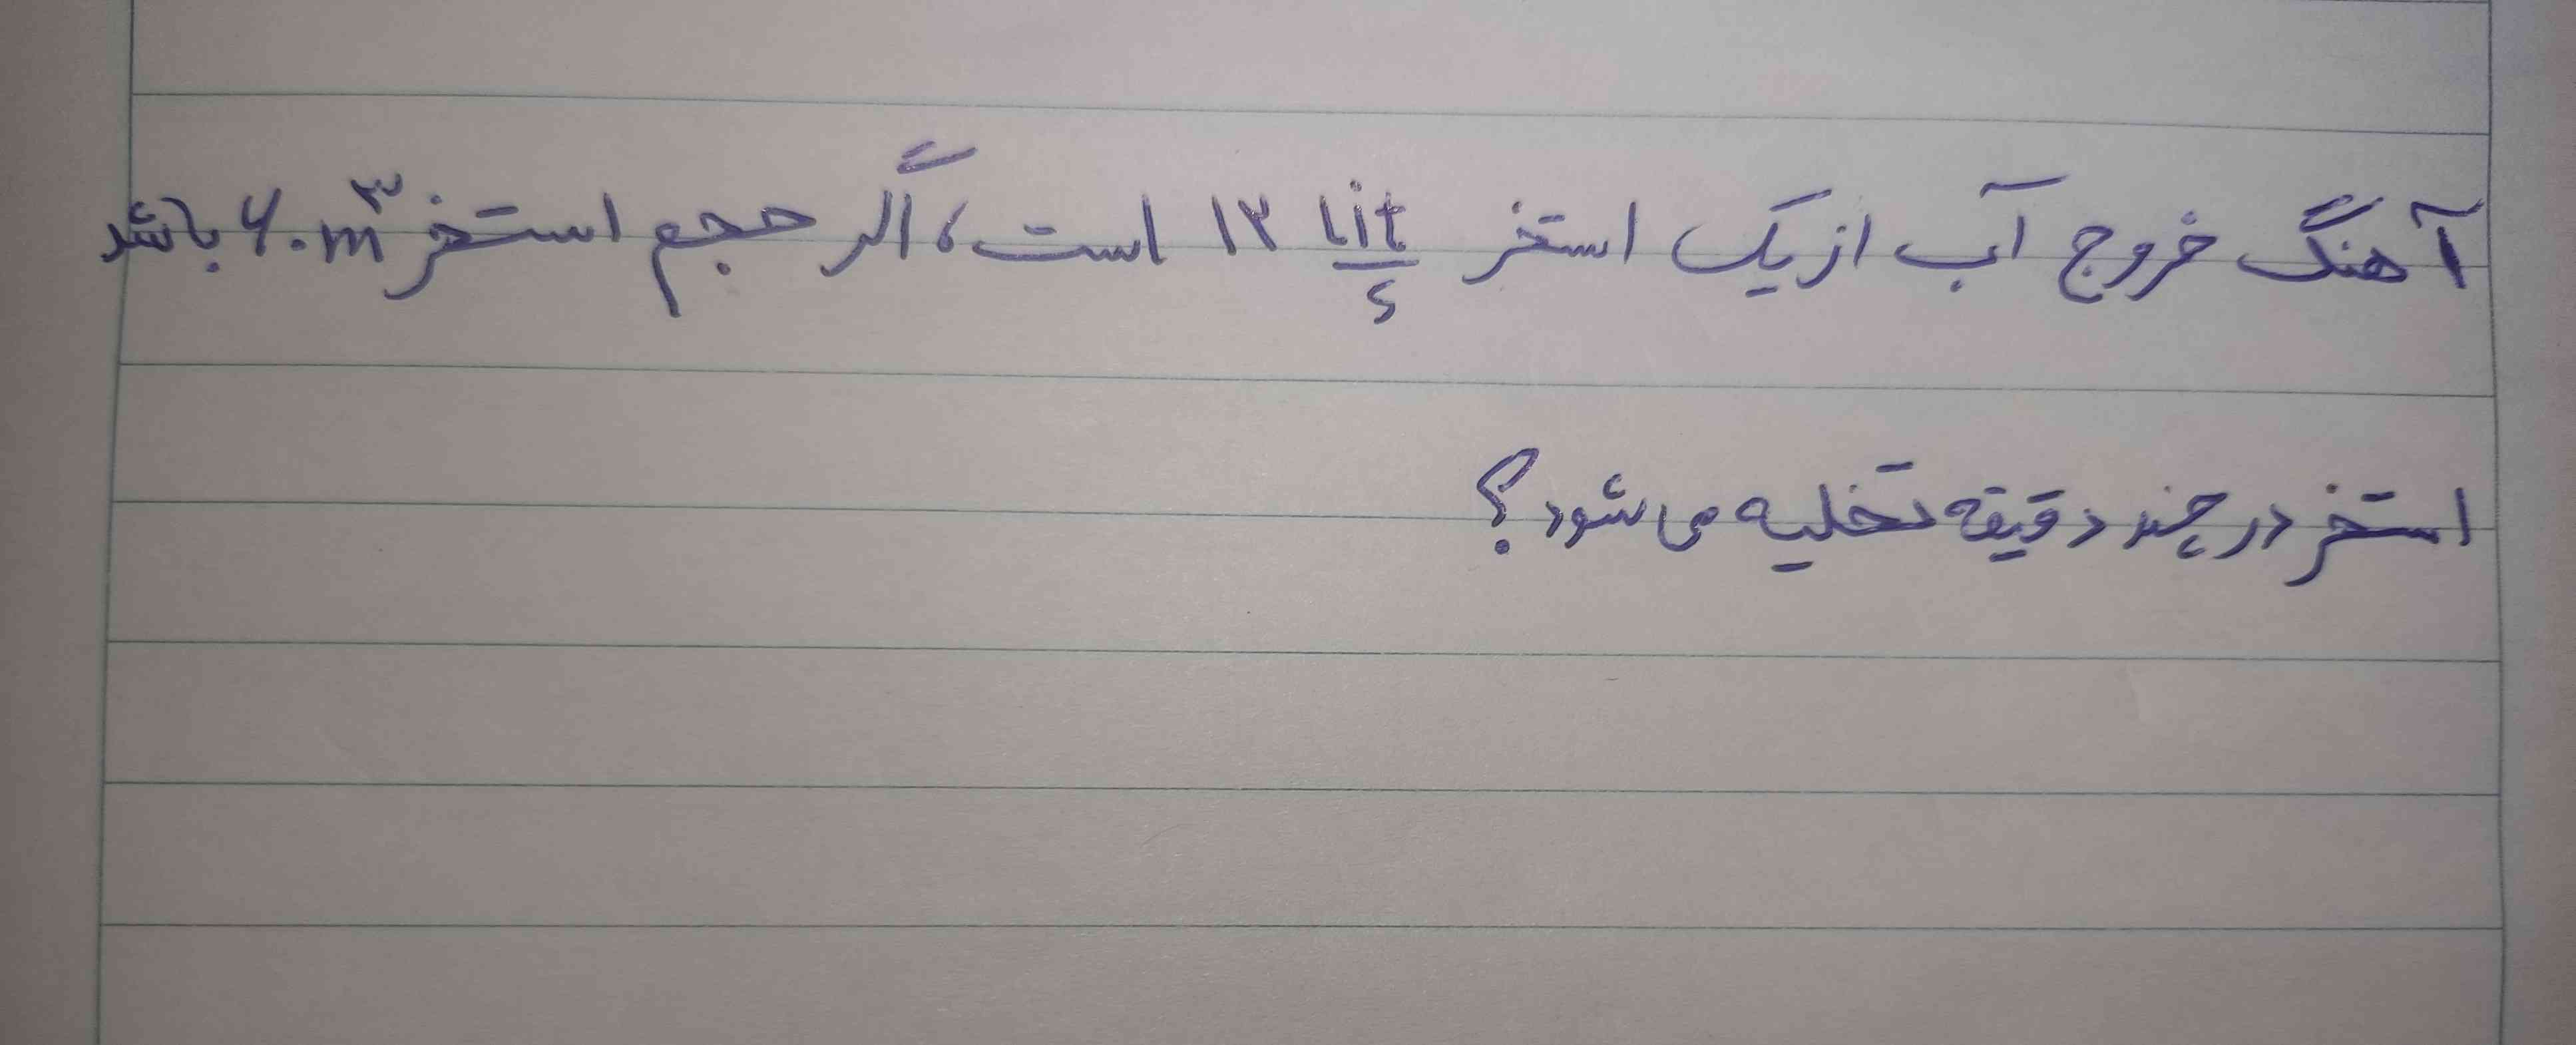 آهنگ خروج آب از یک استخر ۱۲ lit/s است، اگر حجم استخر ۶۰ m³ باشد
استخر در چند دقیقه تخلیه می شود؟